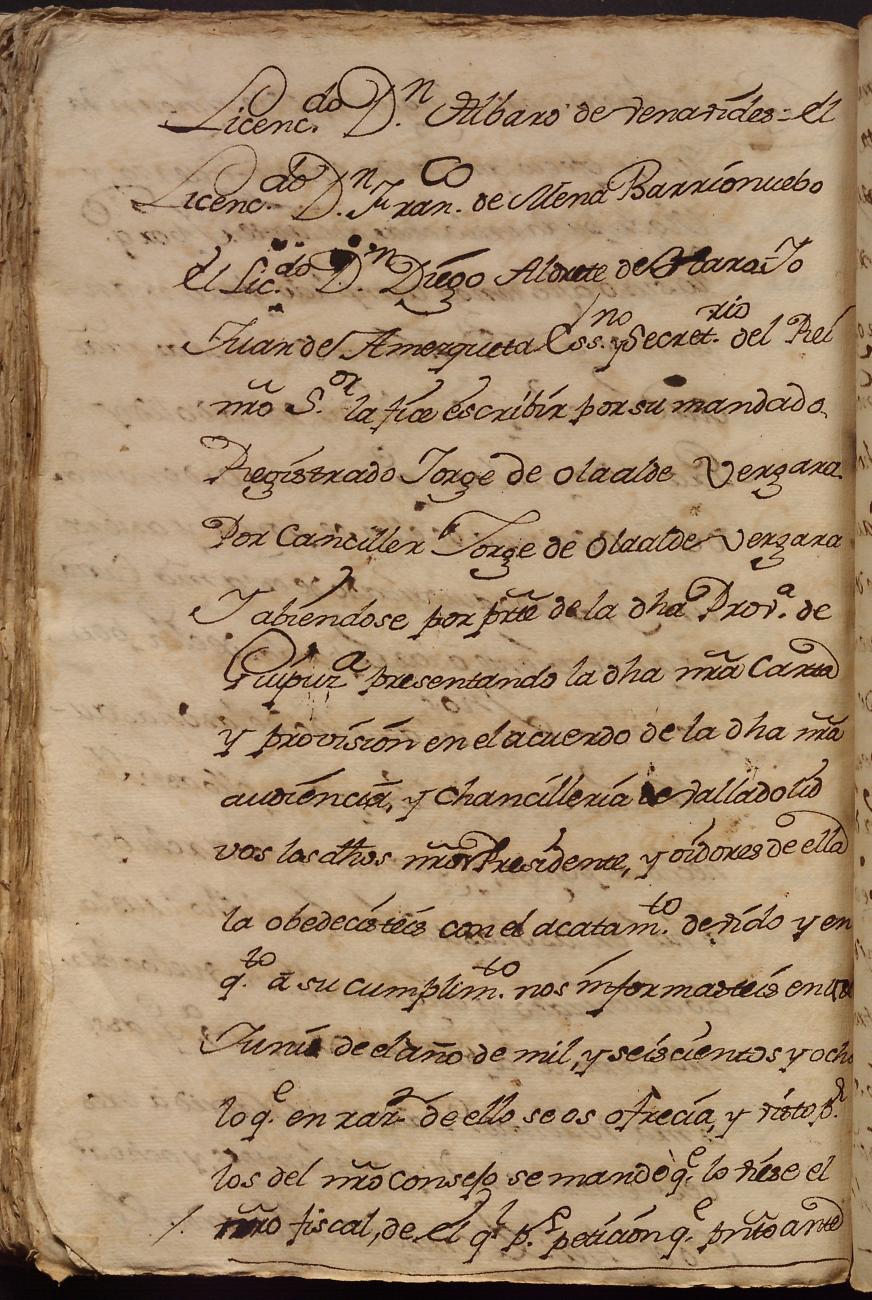 Licenc.do D.n Albaro de venavides = el
Licenc.do D.n Fran.co de Mena Barrionuebo
el Lic.do D.n Diego Aldrete de Haro Yo
Juan de Amezqueta Ess.no y Secret.rio del Rei
nro S.or la fice escribir por su mandado.
Registrado Jorge de olaalde Vergara
Por Canciller Jorge de olaalde Vergara
Y abiendose por prte de la dha Prov.a de
Guipuz.a presentando la dha nra Carta
y provision en el acuerdo de la dha nra
audiencia, y chancilleria de valladolid
vos los dhos nro Presidente, y oidores de ella
la obedecisteis con el acatam.to devido y en
q.to a su cumplim.to nos informasteis en
Junio de el año de mil, y seiscientos y ocho
lo q.e en raz.n de ello se os ofrecia, y visto p.r
los del nro consejo se mandò q.e lo viese el
nro fiscal, de el q.l p.r peticion q.e prnto ante